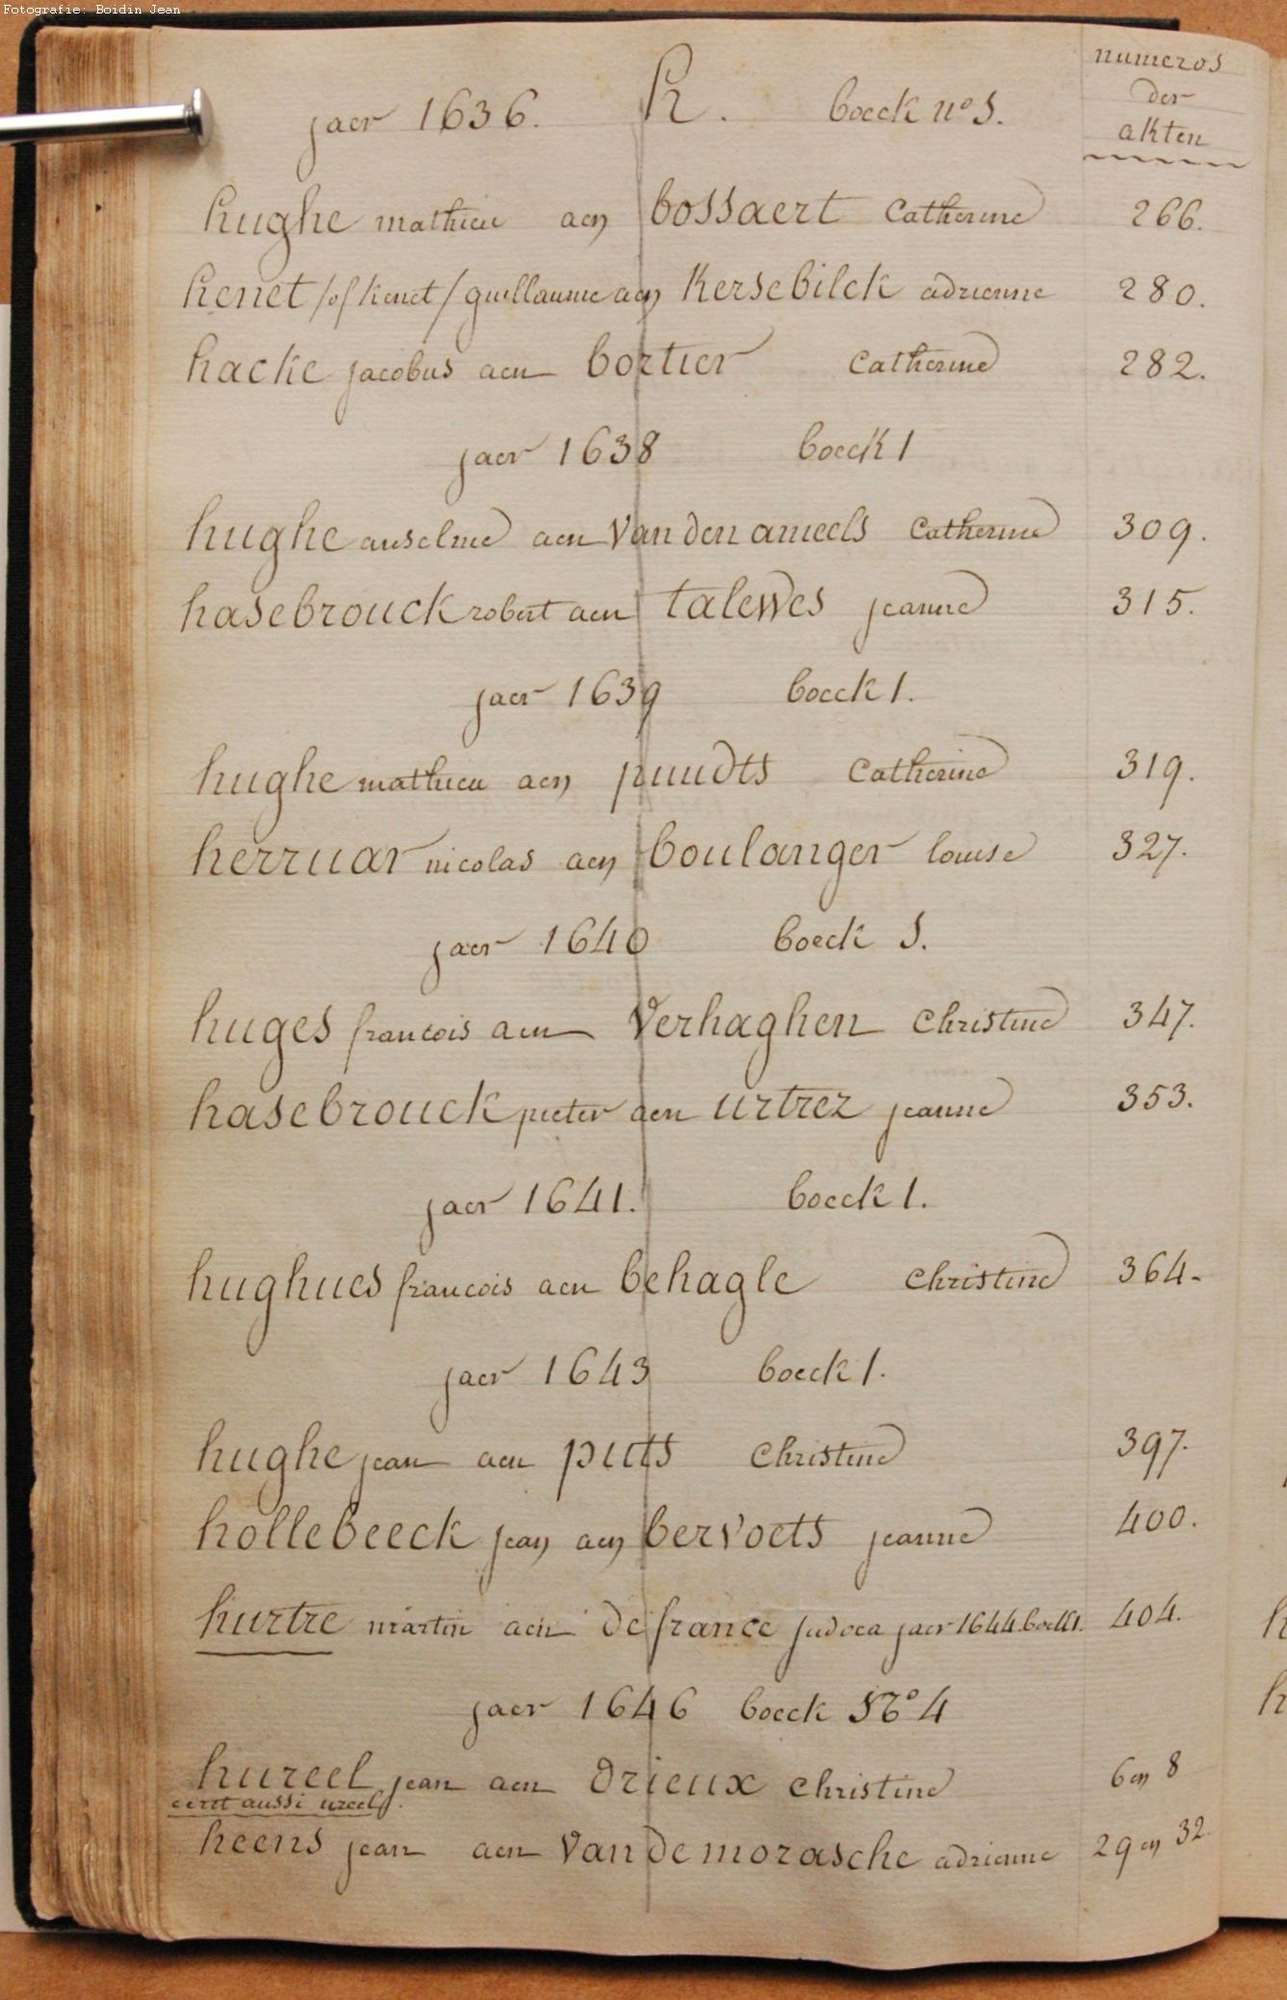 Fotografie: Boidin Jean
numeros
der
akten
jaer 1636. h. boeck n° 1.
hughe mathieu aen bossaert Catherine 266.
henet /of kenet/ guillaume aen Kersebilck adrienne 280.
hacke jacobus aen bortier Catherine 282.
jaer 1638 boeck 1
hughe anselme aen Vanden ameels Catherine 309.
hasebrouck robert aen talewes jeanne 315.
jaer 1639 boeck 1.
hughe mathieu aen puudts Catherine 319.
herruar nicolas aen boulanger louise 327.
jaer 1640 boeck 1.
huges francois aen Verhaghen Christine 347.
hasebrouck pieter aen urtrez jeanne 353.
jaer 1641. boeck 1.
hughues francois aen behagle Christine 364.
jaer 1643 boeck 1.
hughe jean aen puts Christine 397.
hollebeeck jean aen bervoets jeanne 400.
hurtre martin aen de france judoca jaer 1644. boeck 1. 404.
jaer 1646 boeck N° 4
hureel jean aen drieux Christine 6 en 8
ecrit aussi ureel.
heens jean aen Van de morasche adrienne 29 en 32.